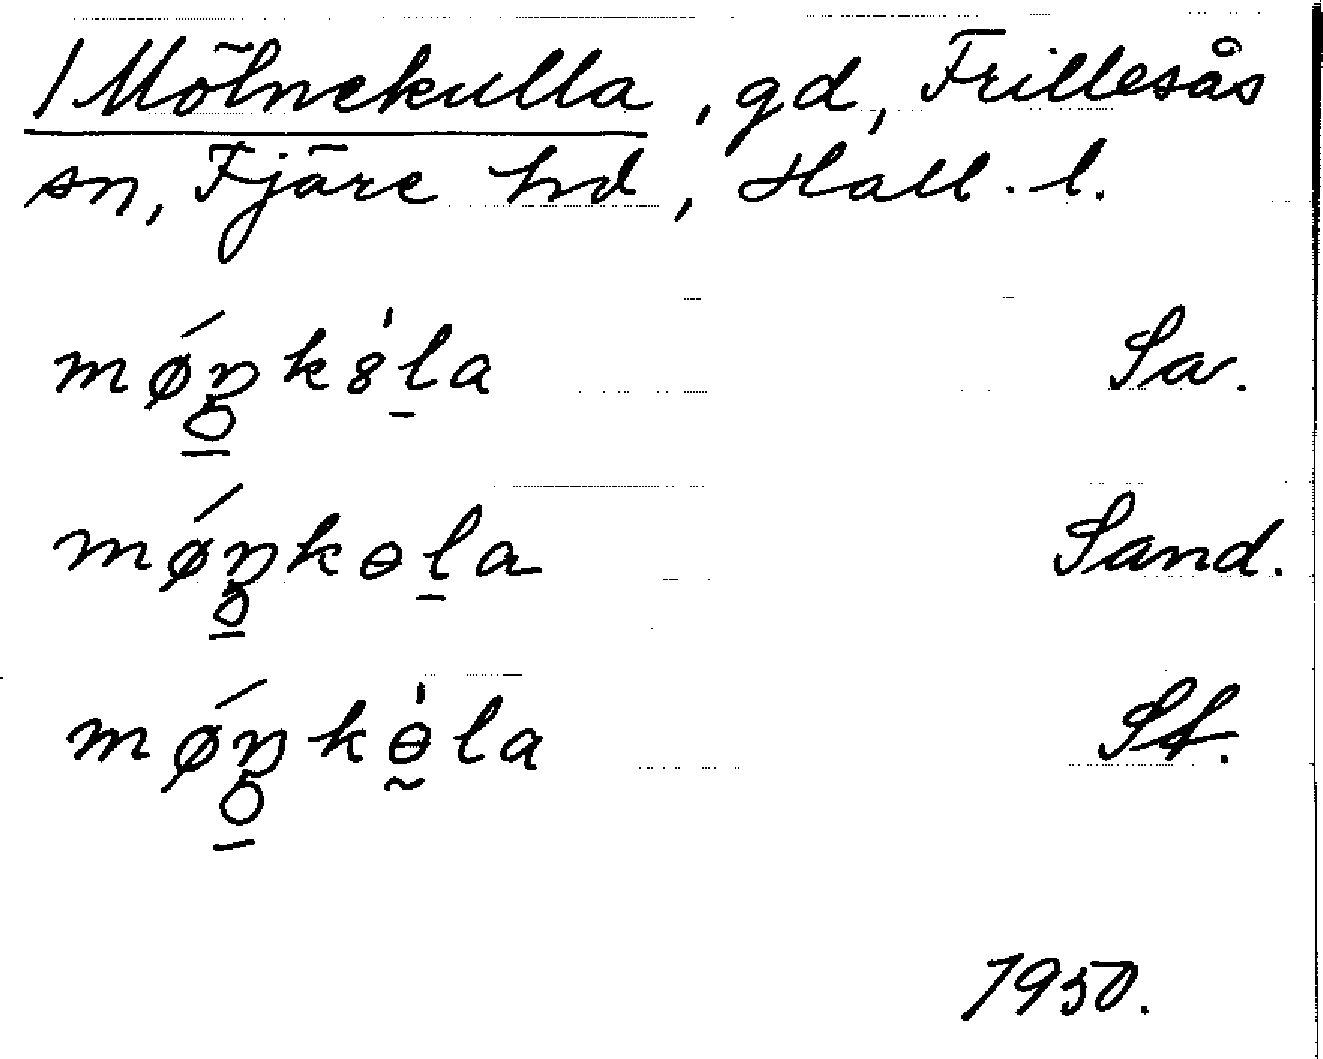 / Mölnekulla, gd, Frillesås
sn, Fjäre hd, Hall. l.
møŋk8la Sa.
møŋkɵla Sand.
møŋkɵla Sf.
1950.